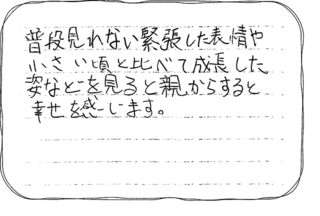 普段見れない緊張した表情や
小さい頃と比べて成長した
姿などを見ると親からすると
幸せを感じます。